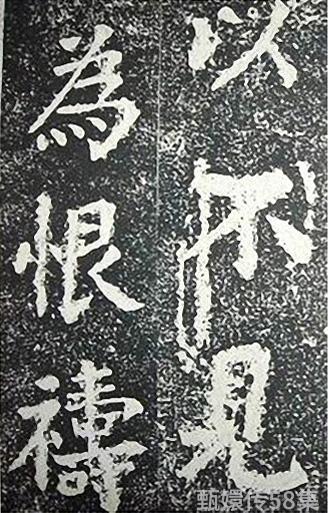 以不見
為恨禱
甄嬛传58集